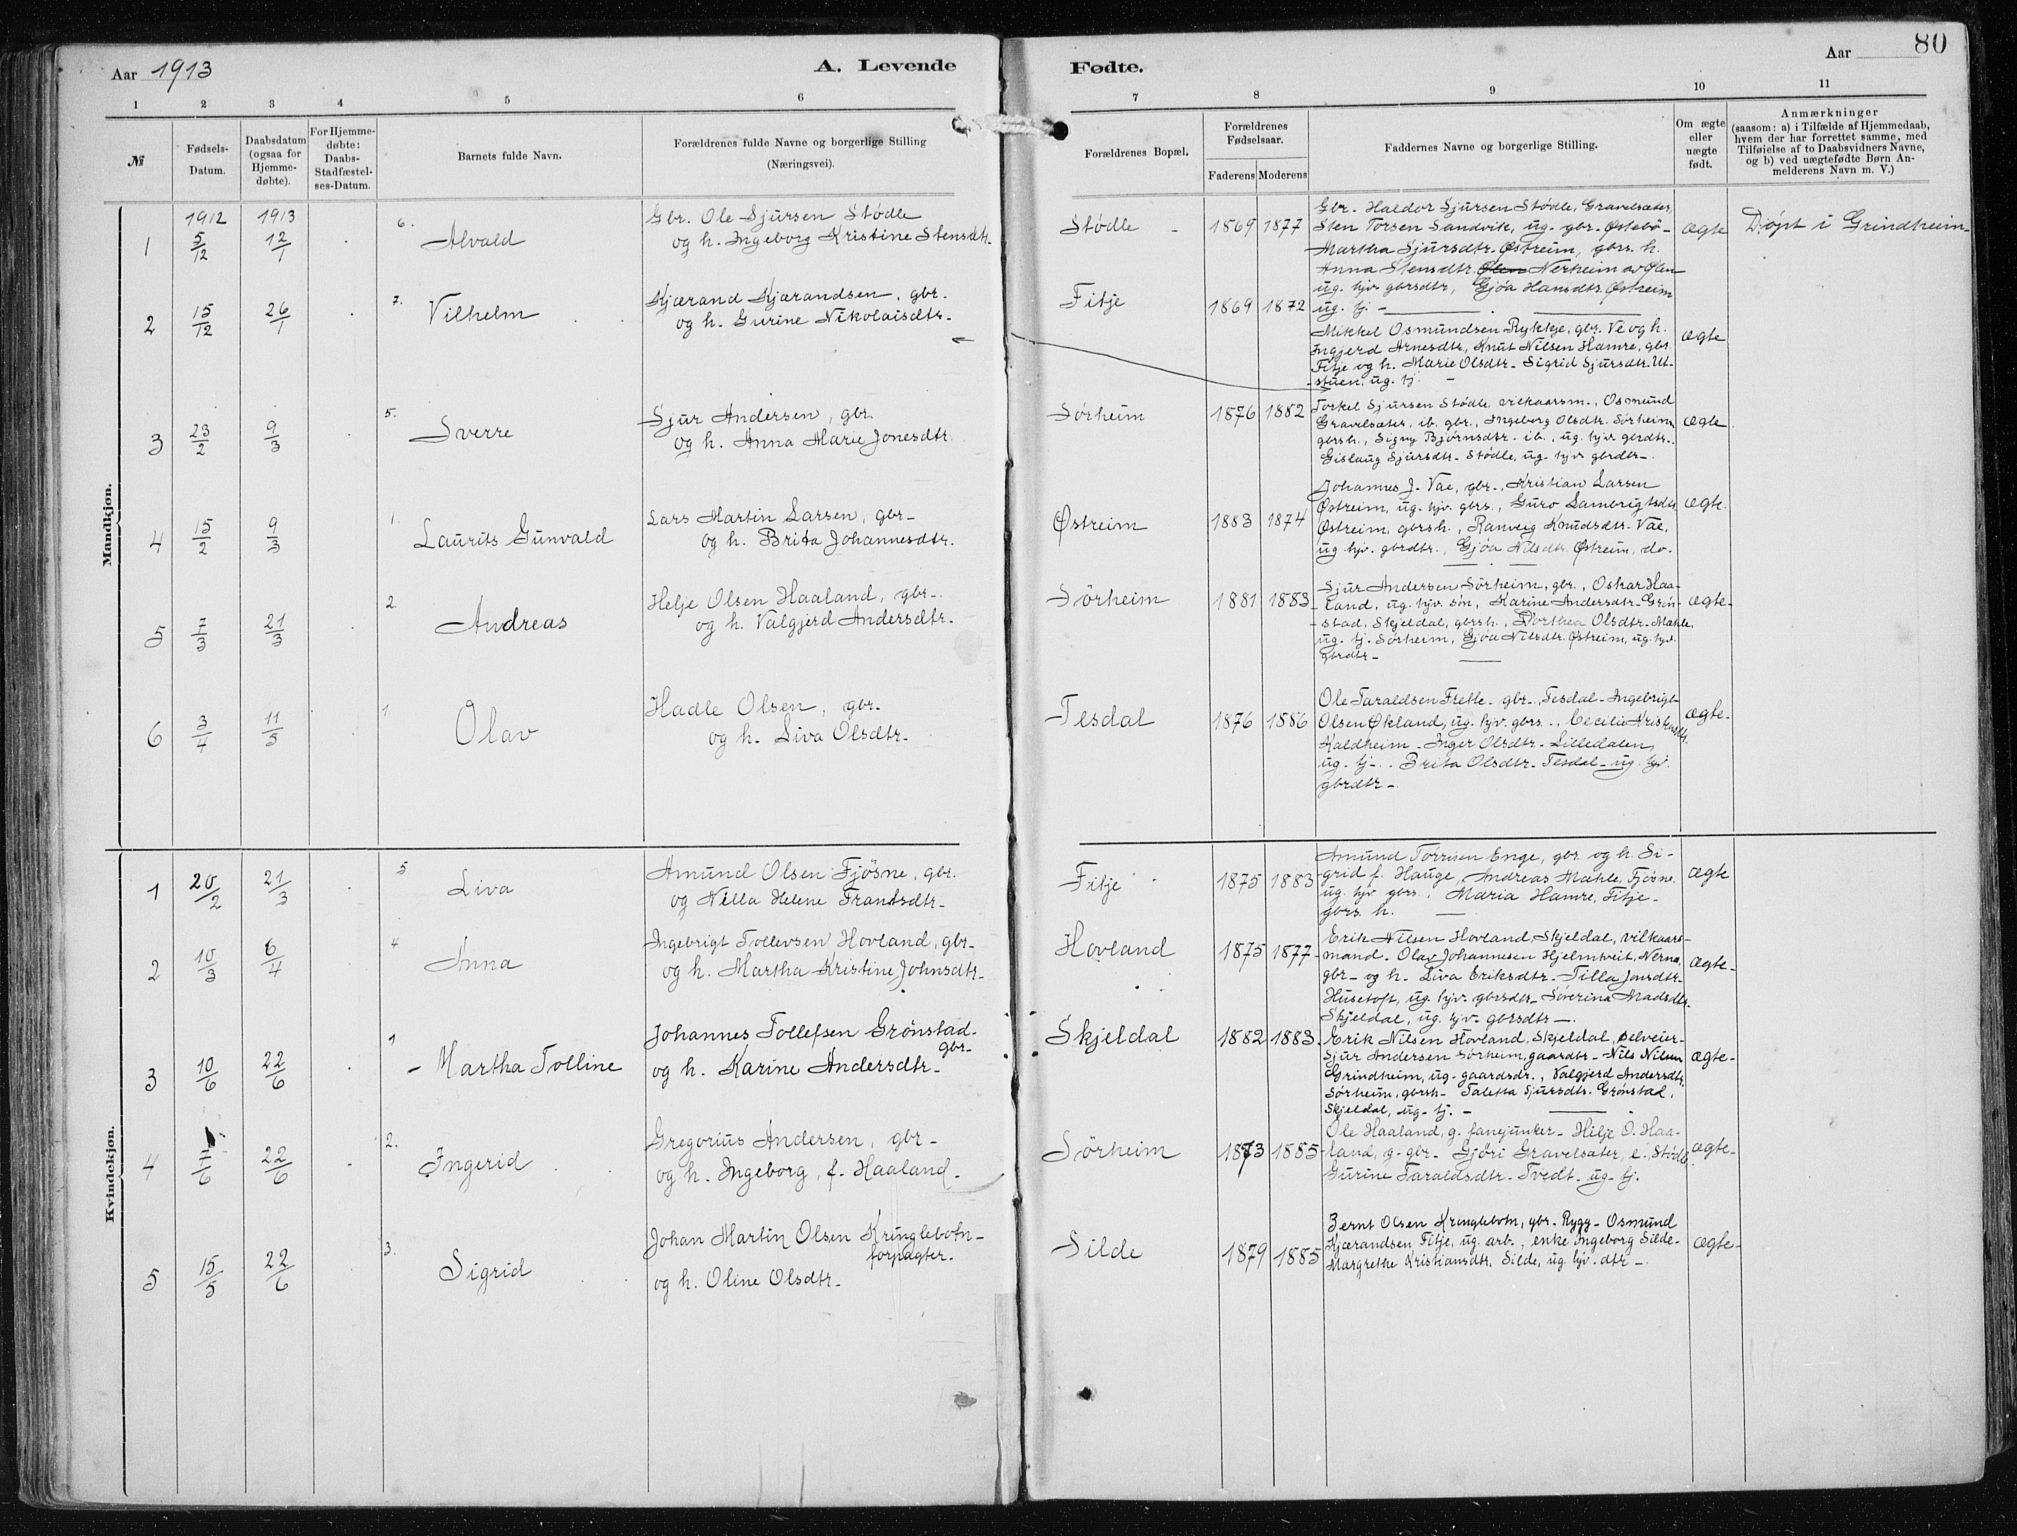 Aar 1913
A. Levende
Fødte.
Aar
80
1 2 3 4 5 6 7 8 9 10 11
№
Fødsels-
Datum.
Daabsdatum
(ogsaa for
Hjemme-
døbte).
For Hjemme-
døbte:
Daabs-
Stadfæstel-
ses-Datum.
Barnets fulde Navn.
Forældrenes fulde Navne og borgerlige Stilling
(Næringsvei).
Forældrenes Bopæl.
Forældrenes
Fødselsaar.
Faderens Moderens
Faddernes Navne og borgerlige Stilling.
Om ægte
eller
uægte
født.
Anmærkninger
(saasom: a) i Tilfælde af Hjemmedaab,
hvem der har forrettet samme, med
Tilføielse af to Daabsvidners Navne,
og b) ved uægtefødte Børn An-
melderens Navn m. V.)
Mandkjøn.
1
1912
5/12
1913
12/1
6.
Alvald
Gbr. Ole Sjursen Stødle
og h. Ingeborg Kristine Stensdtr.
Stødle
1869 1877
Gbr. Haldor Sjursen Stødle, Gravelsæter,
Sten Torsen Sandvik, ug. gbr. Østebö-
Martha Sjursdtr. Østreim, gbrs. h.
Anna Stensdtr. Ølen Nerheim av Ølen
ug. hjv. gbrsdtr., Gjøa Hansdtr. Østreim
ug. tj. -
ægte
Døpt i Grindheim-
2
15/12
26/1
7.
Vilhelm
Kjærand Kjærandsen, gbr.
og h. Gurine Nikolaisdtr.
Fitje
1869 1872
Mikkel Osmundsen Rykkje, gbr. Ve og h.
Ingjerd Arnesdtr., Knut Nilsen Hamre, gbr.
Fitje og h. Marie Olsdtr. Sigrid Sjursdtr. Ut-
stuen, ug. tj. -
ægte
3
23/2
9/3
5.
Sverre
Sjur Andersen, gbr.
og h. Anna Marie Jonesdtr.
Sørheim
1876 1882
Torkel Sjursen Stødle, vilkaarsm., Osmund
Gravelsæter, ib. gbr., Ingeborg Olsdtr. Sörheim,
gbrsh., Signy Bjørnsdtr. ib., ug. hjv gbrdtr.
Gislaug Sjursdtr. Stödle, ug. hjv gbrdtr-.
ægte
4
15/2
9/3
1
Laurits Gunvald
Lars Martin Larsen, gbr-
og h. Brita Johannesdtr.
Østreim
1883 1874
Johannes J. Vae, gbr., Kristian Larsen
Østreim, ug. hjv. gbrs., Guro Lambrigtsdtr
Østreim, gbrsh., Ranveig Knudsdtr. Vae,
ug hjv. gbrdtr., Gjøa Nilsdtr. Østreim, do-
ægte.
5
7/3
21/3
2.
Andreas
Helje Olsen Haaland, gbr-
og h. Valgjerd Andersdtr.
Sörheim
1881 1883
Sjur Andersen Sörheim, gbr., Oskar Haa-
land, ug. hjv. søn, Karine Andersdtr. Grøn-
stad, Skjeldal, gbrsh., Dorthea Olsdtr. Mæhle,
ug. tj. Sørheim, Gjøa Nilsdtr. Østreim, ug. hjv.
gbrdtr-
ægte-
6
3/4
11/5
1.
Olav
Hadle Olsen, gbr.
og h. Liva Olsdtr.
Tesdal
1876 1886
Ole Taraldsen Frette gbr. Tesdal- Ingebrigt
Olsen Økland, ug. hjv. gbrs., Cecilie Kristensdtr.
Kaldheim- Inger Olsdtr- Lilledalen,
ug. tj-. Brita Olsdtr- Tesdal- ug. hjv.
gbrdtr-.
ægte-
Kvindekjøn.
1
20/2
21/3
5
Liva
Amund Olsen Fjösne, gbr.
og Nilla Helene Frantsdtr-
Fitje
1875 1883
Amund Torrisen Enge, gbr. og h. Si-
grid f. Hauge, Andreas Mæhle, Fjösne,
ug. hjv gbrs., Maria Hamre, Fitje-
gbrs. h.
ægte
2
10/3
6/4
4
Anna
Ingebrigt Tollevsen Hovland, gbr-
og h. Martha Kristine Johnsdtr-
Hovland
1875 1877
Erik Nilsen Hovland, Skjeldal, vilkaars-
mand. Olav Johannesen Hjelmtveit, Nernø,
gbr- og h. Liva Eriksdtr- Tilla Jonsdtr.
Husetoft, ug. hjv. gbrsdtr- Sörerina Madsdtr.
Skjeldal, ug. hjv- gbrsdtr-.
ægte-
3
10/6
22/6
1
- Martha Tolline
Johannes Tollefsen Grönstad-
gbr-
og h. Karine Andersdtr-
Skjeldal
1882 1883
Erik Nilsen Hovland, Skjeldal, selveier-
Sjur Andersen Sørheim, gaardtr- Nils Nilsen
Grindheim, ug- gaardsdr., Valgjerd Andersdtr,
Sørheim, gbrsh- Taletta Sjursdtr. Grønstad,
Skjeldal, ug- tj. -
ægte-
4
7/6
22/6
2.
Ingerid
Gregorius Andersen, gbr-
og h. Ingeborg, f. Haaland.
Sörheim
1873 1885
Ole Haaland, g. fanejunker- Hilje O. Haa-
land, g- gbr- Gjöri Gravelsæter, e. Stödle
Gurine Taraldsdtr- Tvedt- ug- tj.
ægte-
5
15/5
22/6
3.
Sigrid
Johan Martin Olsen Kringlebotn-
forpagter.
og h. Oline Olsdtr-
Silde
1879 1885
Bernt Olsen Kringlebotn, gbr. Rygg- Osmund
Kjærandsen, Fitje, ug. arb., enke Ingeborg Silde-
Margrethe Kristiansdtr, Silde, ug. hjv. dtr-.
ægte-